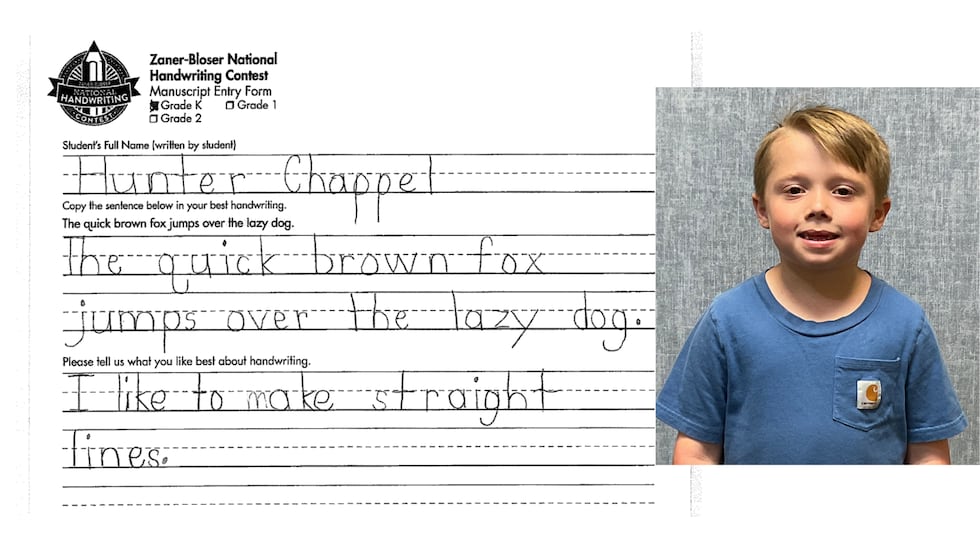 NATIONAL
HANDWRITING
CONTEST
Zaner-Bloser National
Handwriting Contest
Manuscript Entry Form
Grade K Grade 1
Grade 2
Student's Full Name (written by student)
Hunter Chappel
Copy the sentence below in your best handwriting.
The quick brown fox jumps over the lazy dog.
the quick brown fox
jumps over the lazy dog.
Please tell us what you like best about handwriting.
I like to make straight
lines.